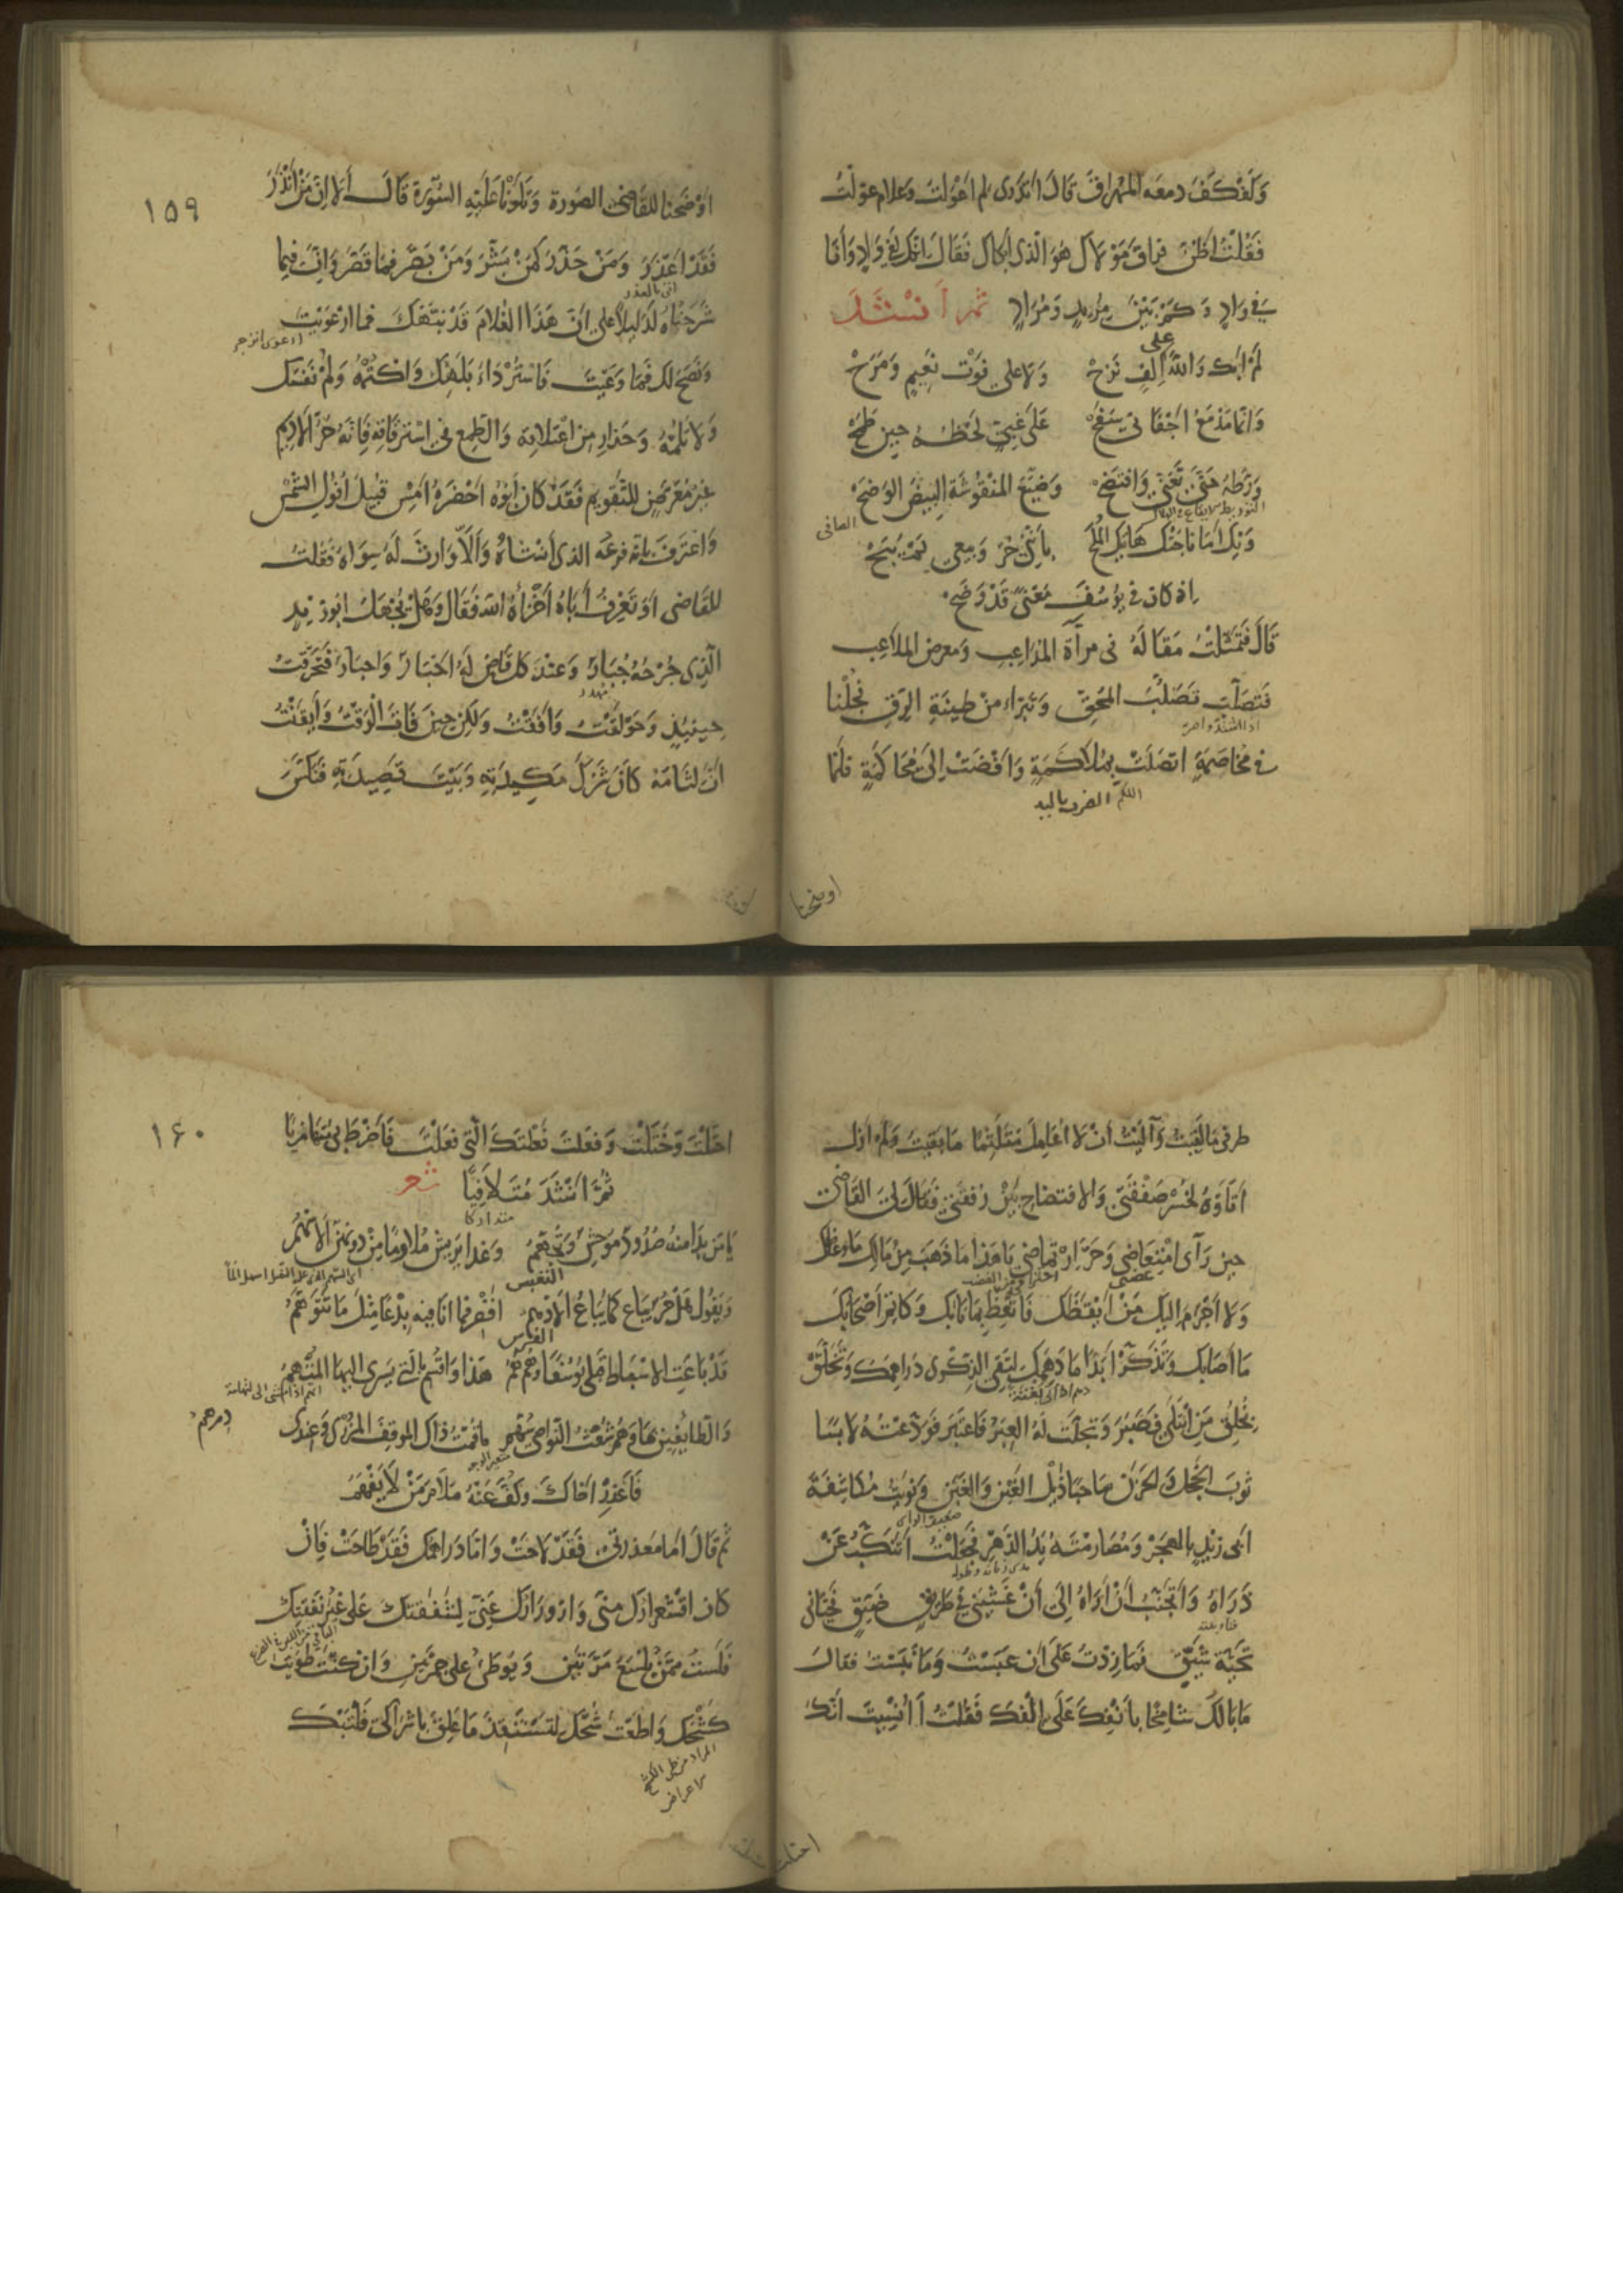 وَكَفْكَفَ دمعَه المُهراقَ قَالَ اَتَدْرى لِمَ اَعْوَلْتُ وَعَلامَ عَوّلْتُ
فَقُلْتُ اَظُنُّ فِراقَ مَوْلاكَ هُوَ الّذى اَبْكاكَ فَقَالَ اِنّكَ لَفِى وَادٍ وَاَنَا
فِى وَادٍ وَكَمْ بَيْنَ مُرِيدٍ وَمُرَادٍ ثمر اَنْشَدَ
لَمْ اَبْكِ وَاللّهِ على اِلْفٍ نَزَحْ وَلا على فَوْتِ نَعِيمٍ وَفَرَحْ
وَانّما مَدْمَعُ اَجْفَانى سَفَحْ عَلَى غَبِىٍّ لَحْظُهُ حِينَ طَمَحْ
وَرّطَهُ حَتّى تَعَنّى وَافْتَضَحْ وَضَيّعَ المَنْقُوشَةَ البِيضَ الوَضَحْ
وَيْكَ اَمَا نَاجَتْكَ هَاتِيكَ المُلَحْ بِاَنّنِى حُرٌّ وَبَيْعِى لَمْ يُبَحْ
اِذ كانَ فى يُوسُفَ مَعْنىً قَدْ وَضَحْ
قَالَ فَتَمَثّلْتُ مَقَالَهُ فى مِرآة المُدَاعِبِ وَمعرض المُلاَعِب
فَتَصَلّبَ تَصَلُّبَ المُحِقِّ وَتَبَرّاءَ مِنْ طِينَةِ الرّقِ فَجُلْنا
فى مُخَاصَمَةٍ اتصَلَتْ بِمُلاَكَمَةٍ وَاَفْضَتْ اِلَى مُحَاكَمَةٍ فَلَمّا
اللكم الضرب باليد
اوضحنا
١٥٩
اَوْضَحْنا للقَاضى الصّورة وَتَلَوْنَا عَلَيْهِ السُّورَةَ قَالَ اَلا اِنّ مَنْ اَنْذَرَ
فَقَدْ اَعْذَرَ وَمَنْ حَذّرَ كَمَنْ بَشّرَ وَمَنْ بَصّرَ فما قَصّرَ وَاِنّ فيما
اتى بالعذر
شَرَحْتُماهُ لَدَلِيلاً على اَنّ هَذَا الغُلامَ قَدْ نَبّهَكَ فما ارْعَوَيْتَ
وَنَصَحَ لَكَ فَمَا وَعَيْتَ فَاسْتُرْ دَاءَ بَلَهِكَ وَاكْتُمْهُ وَلُمْ نَفْسَكَ
وَلا تَلُمْهُ وَحَذارِ مِنَ اعْتِلاقِهِ وَالطّمَعِ فى اسْتِرقَاقِهِ فَاِنّهُ حُرُّ الاَدِيمِ
غَيْرُ مُعَرّضٍ للتّقوِيمِ فَقَدْ كانَ اَبُوهُ اَحْضَرَهُ اَمْسِ قُبَيْلَ اُفُولِ الشّمْسِ
وَاعْتَرَفَ بِاَنّه فرعُه الذى اَنْشَاَهُ وَاَلاّ وَارِثَ لَهُ سِوَاهُ فَقُلتُ
للقَاضى اَوَ تَعْرِفُ اَبَاهُ اَخْزَاهُ اللّه فَقَالَ وَهَلْ يُجْهَلُ ابُو زَيْدٍ
الّذِى جُرْحُهُ جُبَارٌ وَعِنْدَ كلّ قَاضٍ لَهُ اَخْبَارٌ وَاخبَارٌ فَتَحَرّقْتُ
حِينَئِذٍ وَحَوْلَقْتُ وَاَفَقْتُ وَلكِنْ حِينَ فَاتَ الْوَقْتُ وَاَيقَنْتُ
اَنّ لثَامَهُ كَانَ شَرَكَ مَكِيدَتِهِ وَبَيْتَ قَصِيدَتِهِ فَنَكَسَ
طرفى مَا لَقِيتُ وَآلَيْتُ اَنْ لا اُعَامِلَ مُتَلَثِّمًا مَا بَقِيتُ وَلَمْ اَزَل
اَتَاَوّهُ لِخُسْرِ صَفْقَتِى وَالافتضاحِ بَيْنَ رُفْقَتِى فَقَالَ لِىَ القَاضِى
حِينَ رَآى امْتِعَاضِى وَحَرّ ارْتماضِى يَا هَذَا مَا ذَهَبَ مِنْ مَالِكَ مَا وَعَظَكَ
وَلا اَجْرَمَ اِلَيكَ مَنْ اَيْقَظَكَ فَاتّعِظْ بِمَا نَابَكَ وَكَاتِمْ اَصْحَابَكَ
مَا اَصَابَكَ وَتَذَكّرْ اَبَدًا مَا دَهَمَكَ لِتَقِىَ الذِّكْرَى دَرَاهِمَكَ وَتَخَلّقْ
بِخُلُقِ مَنِ ابْتُلِىَ فَصَبَرَ وَتَجَلّتْ لَهُ العِبَرُ فَاعْتَبَرَ فَوَدّعْتُهُ لابسًا
ثوبَ الخجَلِ وَالحَزَنِ سَاحِبًا ذَيْلَ الغَبْنِ وَالغَبَنِ وَنَوَيْتُ مُكَاشَفَةَ
اَبى زَيْدٍ بِالهَجْرِ وَمُصَارَمَتَهُ يَدَ الدَّهْرِ فَجَعَلْتُ اَتَنَكّبُ عَنْ
ذَرَاهُ وَاَتَجَنّبُ اَنْ اَرَاهُ اِلَى اَنْ غَشِيَنِى فى طَرِيقٍ ضَيّقٍ فَحَيّانى
تَحِيّة شَيّقٍ فَمَا زِدْتُ عَلَى اَن عَبَسْتُ وَمَا نَبَسْتُ فقالَ
مَا بَالُكَ شامِخًا بِاَنْفِكَ عَلَى اِلْفِكَ فَقُلتُ اَاُنْسِيتَ اَنّكَ
احتلت
١٦٠
احتَلْتَ وَخَتَلْتَ وَفعَلتَ فَعْلَتَكَ الّتى فعَلْتَ فَاَضْرَطَ بى مُتهَازِيًا
ثُمّ اَنشَدَ مُتَلاَفِيًا شعر
متداركا
يَا مَنْ بَدَا مِنهُ صُدُودٌ مُوحِشٌ وَتَجَهُّمُ وَغدا يَرِيشُ مُلاوِمًا مِنْ دُونِهنّ الاَسْهُمُ
وَيَقُولُ هَلْ حُرٌّ يُبَاعُ كما يُبَاعُ الاَدْهمُ اَقْصِرْ فما اَنَا فِيهِ بِدْعًا مِثلَ مَا تتوَهّمُ
قَدْ بَاعَتِ الاسْبَاطُ قَبلى يُوسُفًا وَهُمُ هُمُ هَذا وَاُقْسِمُ بالّتى يَسرى اليهَا المُتْهِمُ
وَالطّائِفِينَ بهَا وَهُمْ شُعْثُ النّوَاصِى سُهّمُ مَا قُمْتُ ذَاكَ الموقِفَ المُزْرِى وَعِنْدِى
دِرهمٌ
فَاعْذِرْ اَخَاكَ وَكُفّ عَنْهُ مَلاَمَ مَنْ لاَ يَفْهَمُ
ثمّ قَالَ اَمّا مَعذِرَتى فَقَدْ لاحَتْ وَاَمّا دَرَاهِمُكَ فَقَدْ طَاحَتْ فَاِنْ
كانَ اقْشِعرَارُكَ مِنّى وَازْوِرَارُكَ عَنّى لِشَفَقَتِكَ عَلَى غُبّرِ نَفَقَتِكَ
فَلَسْتُ مِمّنْ يَلْسَعُ مَرّتَيْنِ وَيُوطِئُ عَلَى جمْرَتَيْنِ وَاِنْ كُنْتَ طَوَيْتَ
كَشْحَكَ وَاَطَعْتَ شُحّكَ لِتَسْتَنْقِذَ مَا عَلِقَ بِاَشْرَاكى فَلْتَبْكِ
المراد من طى الكشح